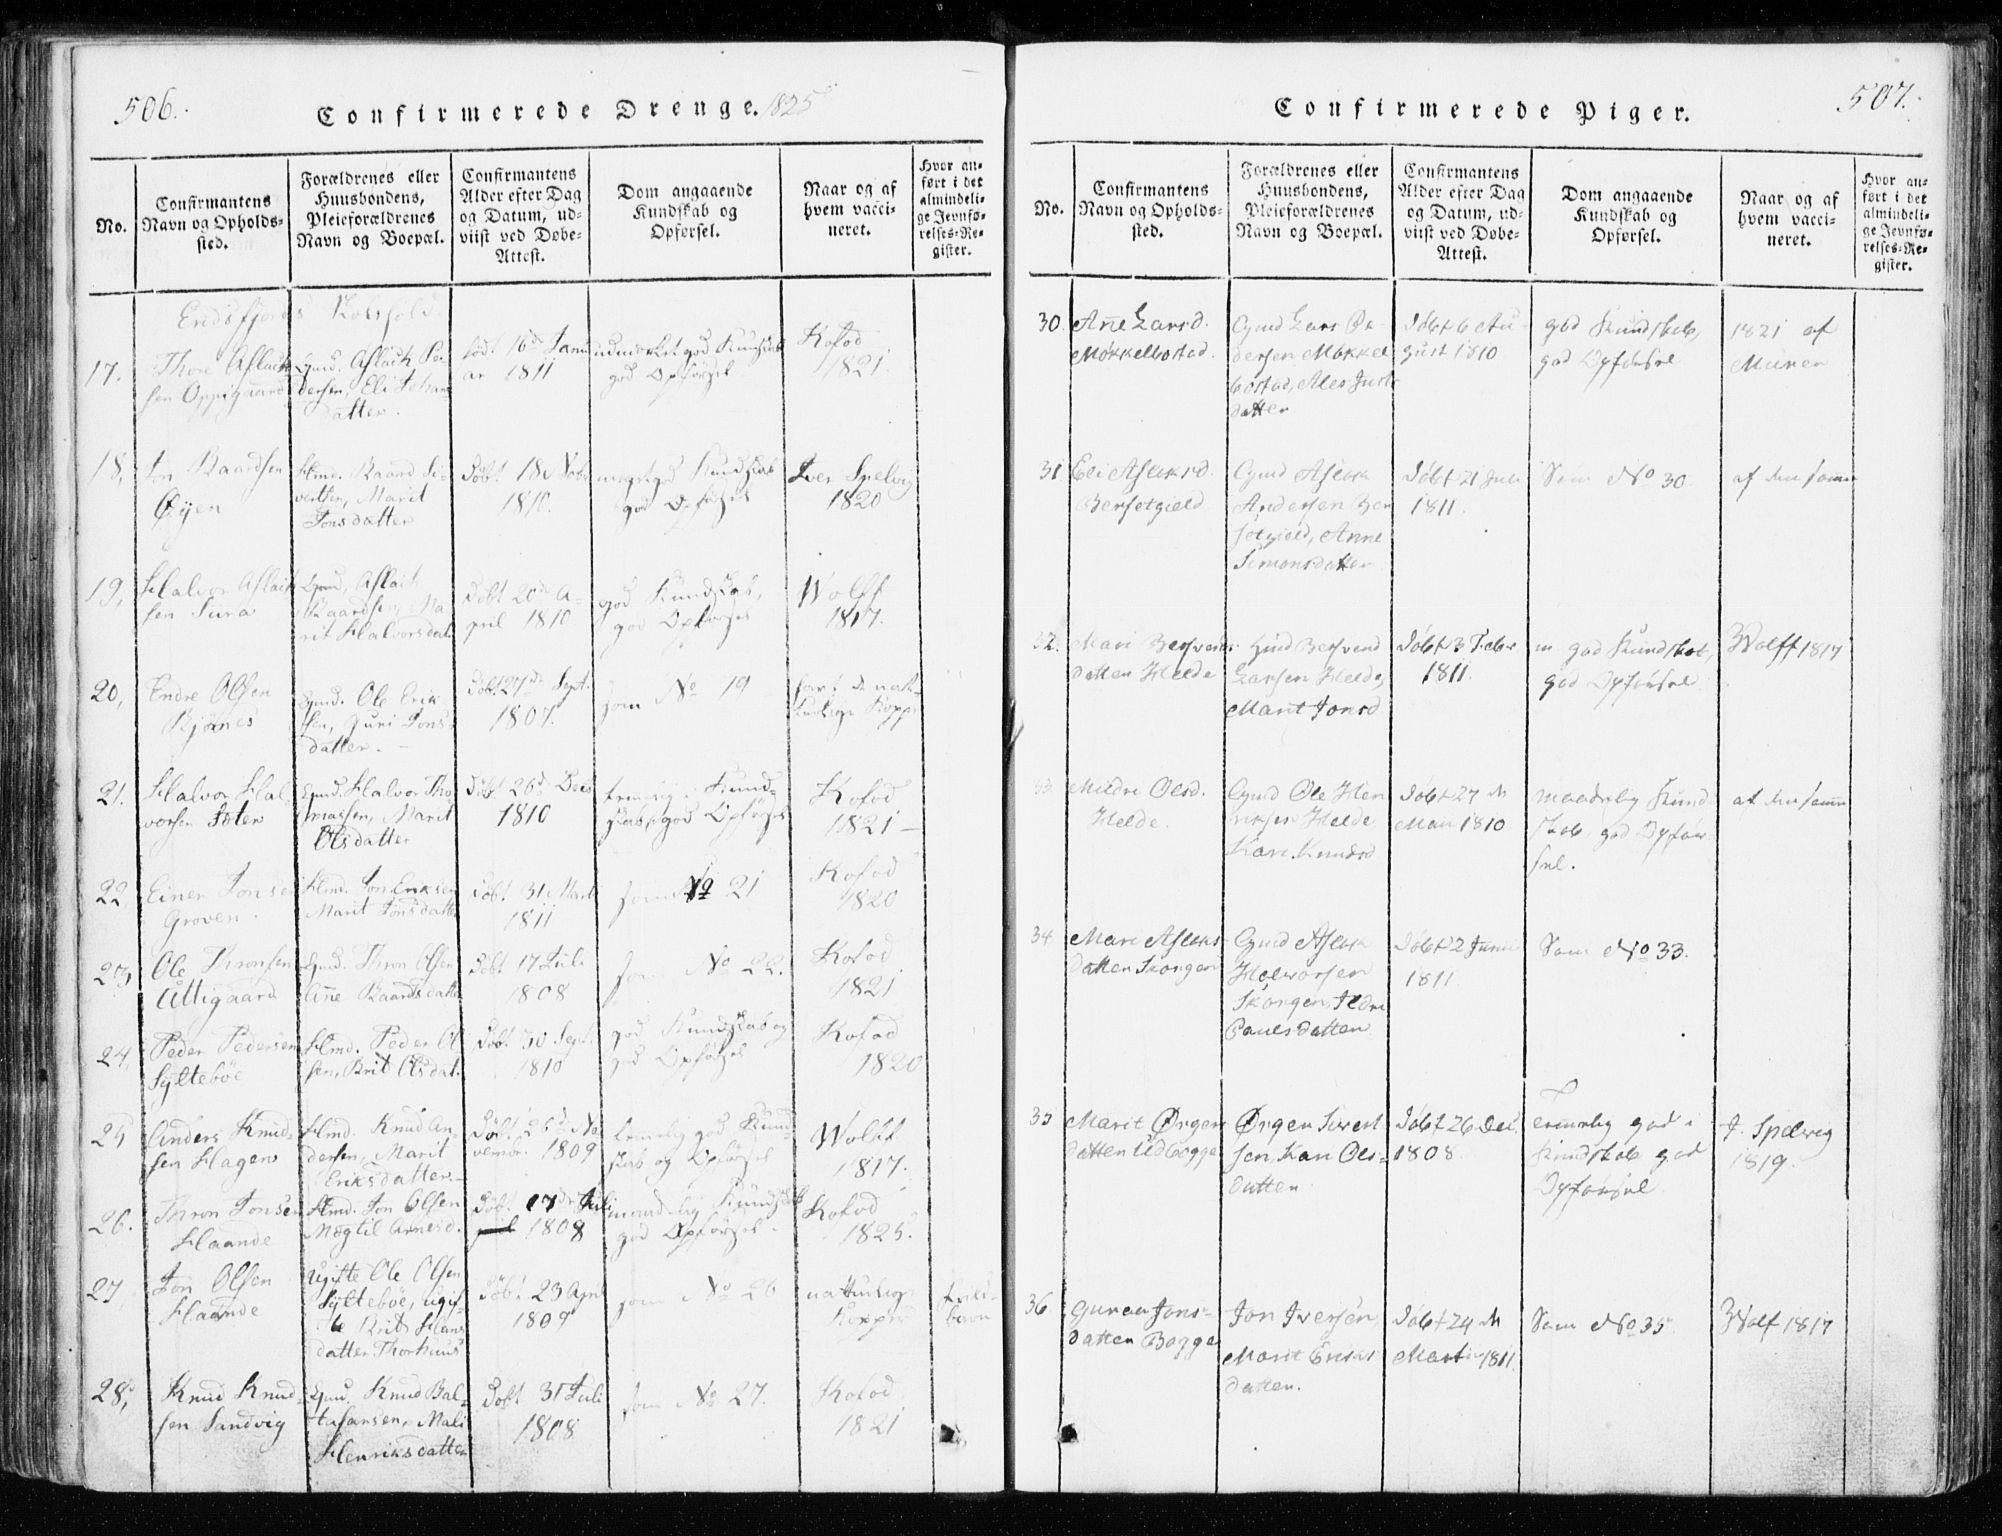 506.
Confirmerede Drenge. 1825
No.
Confirmantens
Navn og Opholds-
sted.
Forældrenes eller
Huusbondens,
Pleieforældrenes
Navn og Boepæl.
Confirmantens
Alder efter Dag
og Datum, ud-
viist ved Døbe-
Attest.
Dom angaaende
Kundskab og
Opførsel.
Naar og af
hvem vacci-
neret.
Hvor an-
ført i det
almindeli-
ge Jevnfø-
relses-Re-
gister.
17.
Thore Aslach
sen Oppigaard
Gmd. Aslach Pe-
dersen, Eli Johan
datter.
fød. 16d Janu
ar 1811
udmærket god Kundskab
god Opførsel
Kofod
1821
18,
Jon Baardsen
Øyen
Hmd. Baard Si-
vertsen, Marit
Jonsdatter
Døbt 18 Novbr
1810.
meget god Kundskab
god Opførsel
Iver Spelvig
1820
19,
Halvor Aslach
sen Sura
Gmd. Aslach
Baardsen, Ma-
rit Halvorsdat.
Døbt 20de A-
pril 1810.
god Kundskab,
god Opførsel
Wolff
1817.
20,
Endre Olsen
Gmd. Ole Erik-
sen, Guri Jons-
datter.
Døbt 27de Sept.
1807.
som No 19
havt de nat-
turlige Kopper
21.
Halvor Hal-
vorsen
Gmd. Halvor Tho-
massen, Marit
Olsdatter
Døbt 26d Decb
1810
temmelig Kund-
skab, god Opførsel
Kofod
1821 -
22
Einer Jonsen
Groven.
Hmd. Jon Eriksen
Marit Jonsdatter
Døbt 31 Marti
1811
som No 21
Kofod
1820
23,
Ole Thronsen
Uttigaard
Gmd. Thron Olsen
Ane Baardsdatter
Døbt 17 Juli
1808
som No 22.
Kofod
1821
24,
Peder Pedersen
Syltebøe
Hmd. Peder Ol
sen, Brit Olsdat.
Døbt 30 Sept.
1810
god Kundskab og
god Opførsel
Kofod
1820
25
Anders Knud-
sen Hagen
Hmd. Knud An-
dersen, Marit
Eriksdatter.
Døbt 26d No
vembr. 1809
temmelig god Kund-
skab og Opførsel
Wolff
1817.
26.
Thron Jonsen
Haande
Hmd. Jon Olsen
Magtil Arnesd.
Døbt 17de Juli
1808
maadelig Kundskab
god Opførsel.
Kofod
1825.
27,
Jon Olsen
Haande
Ugifte Ole Olsen
Syltebøe, ugif-
te Brit Hans
datter Thorhuus
Døbt 23 April
1809
som No 26
naturlige
Kopper
28,
Knud Knud
sen Sandvig
Gmd. Knud Bal-
thasarsen, Mali
Henriksdatter
Døbt 31 Juli
1808
som No 27.
Kofod
1821
507.
Confirmerede Piger.
No.
Confirmantens
Navn og Opholds-
sted.
Forældrenes eller
Huusbondens,
Pleieforældrenes
Navn og Boepæl.
Confirmantens
Alder efter Dag
og Datum, ud-
viist ved Døbe-
Attest.
Dom angaaende
Kundskab og
Opførsel.
Naar og af
hvem vacci-
neret.
Hvor an-
ført i det
almindeli-
ge Jevnfø-
relses-Re-
gister.
30.
Ane Larsd.
Møkkelbostad.
Gmd Lars Pe-
dersen Møkkel
bostad,
datter
Døbt 6 Au-
gust 1810
god Kundskab,
god Opførsel
1821 af
31
Eli Aslaksd.
Bersetgield
Gmd Aslak
Andersen Ber
setgield, Anne
Simonsdatter
Døbt 21 Juli
1811.
Som No 30.
af den samme
32.
Mari Bersvends-
datter Helde
Gmd Bersvend
Larsen Helde,
Marit Jonsd
Døbt 3 Febr
1811.
m. god Kundskab,
god Opførsel
Wolff 1817
33
Mildri Olsd.
Helde.
Gmd Ole Hen
riksen Helde
Kari Knudsd
Døbt 27 de
Mai 1810
maadelig Kund
skab, god Opfør
sel.
af den samme
34
Mari Aslaks-
datter Skorgen
Gmd Aslak
Halvorsen
Skorgen, Ildri
Paulsdatter
Døbt 2 Junii
1811.
Som No 33.
35
Marit Ørgens
datter Udbogge
Ørgen Sivert
sen, Kari Ols-
datter
Døbt 26 Dec.
1808.
Temmelig god i
Kundskab god
Opførsel
J. Spelvig
1819.
36.
Guroa Jons-
datter Bogge
Jon Iversen
Marit Eriks
datter.
Døbt 24 de
Marti 1811
Som No 35
Wolf 1817